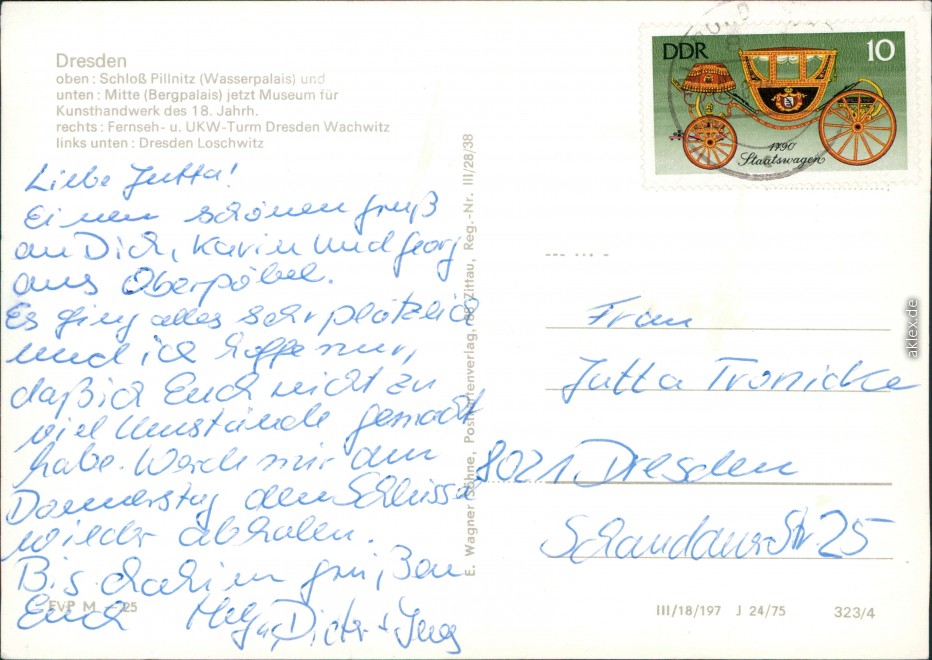 Dresden
oben: Schloß Pillnitz (Wasserpalais) und
unten: Mitte (Bergpalais) jetzt Museum für
Kunsthandwerk des 18. Jahrh.
rechts: Fernseh- u. UKW-Turm Dresden Wachwitz
links unten: Dresden Loschwitz
Liebe Jutta!
Einen schönen Gruß
an Dich, Karin und Georg
aus Oberpöbel.
Es ging alles sehr plötzlich
und ich hoffe nur,
daß ich Euch nicht zu
viel Umstände gemacht
habe. Werde mir am
Donnerstag den Schlüssel
wieder abholen.
Bis dahin grüßen
Euch Dieter + Jens
EVP M -,25
E. Wagner Söhne, Postkartenverlag, 88 Zittau, Reg.-Nr. III/28/38
DDR 10
1790
Staatswagen
Frau
Jutta Tronicke
8021 Dresden
Schandauer Str 25
III/18/197 J 24/75 323/4
aklex.de